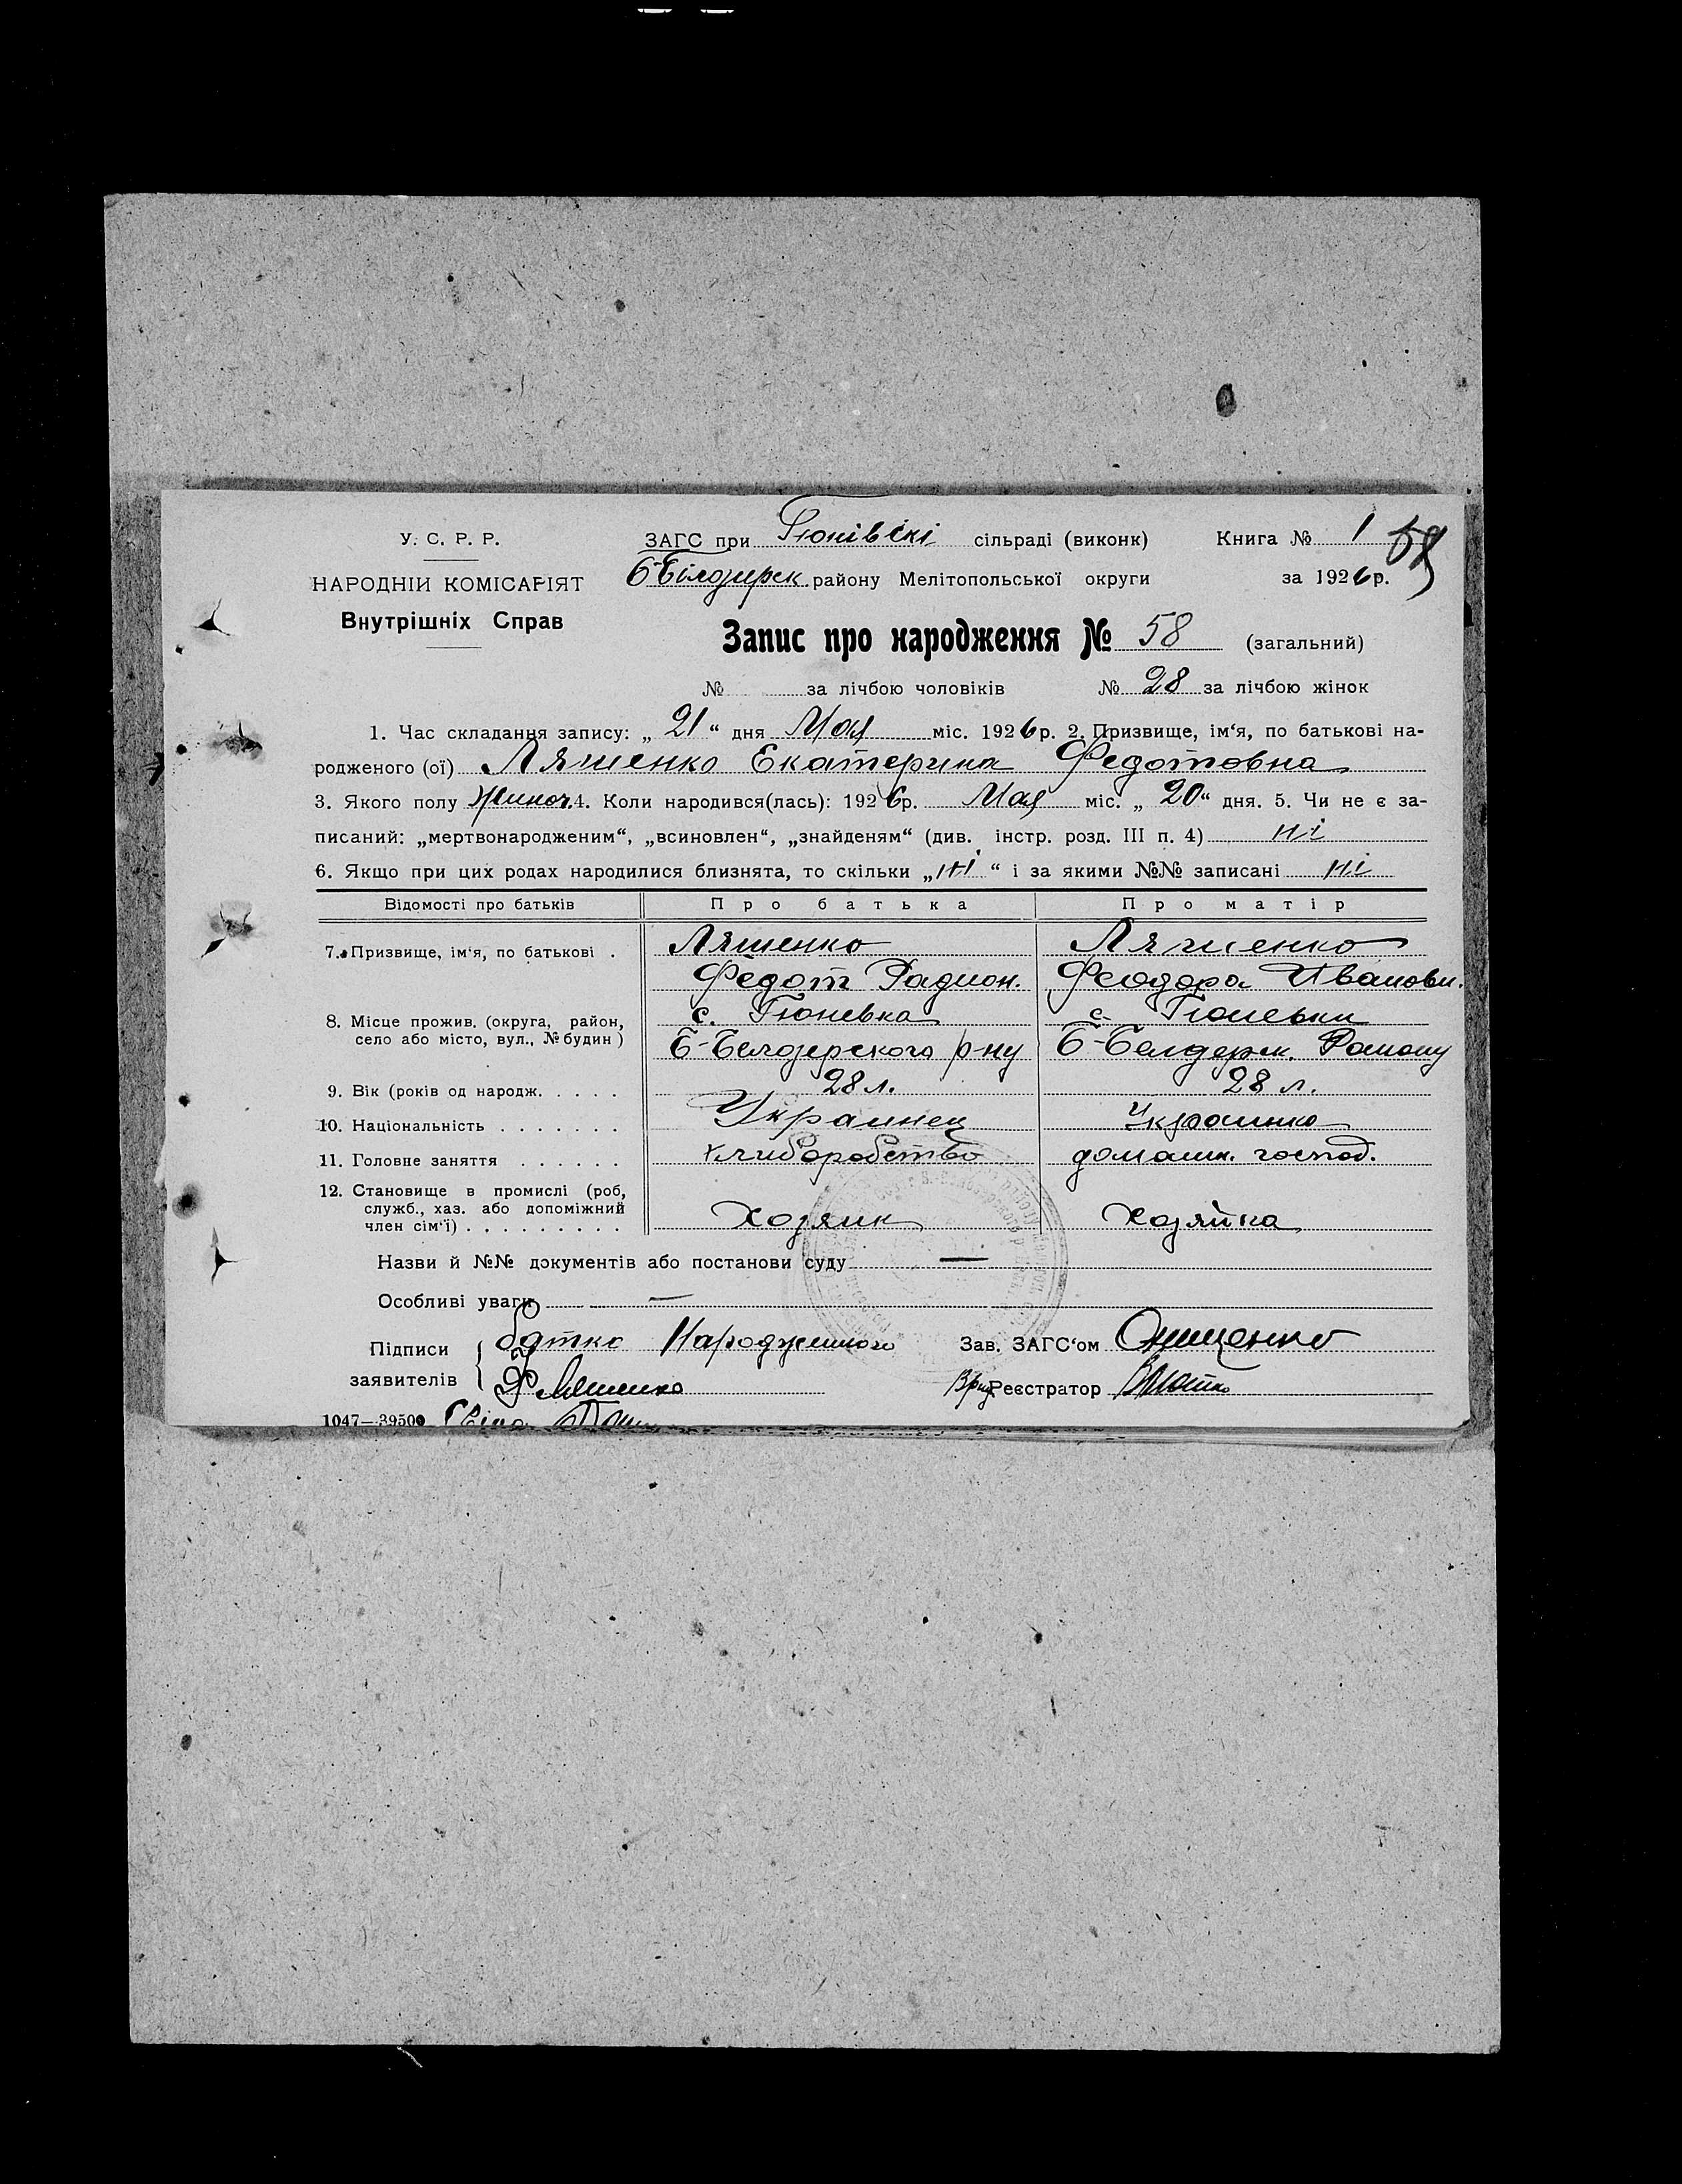 У. С. Р. Р.
НАРОДНІЙ КОМІСАРІЯТ
Внутрішніх Справ
ЗАГС при Гюнівскі сільраді (виконк) Книга № 1 58
Б-Білозирск району Мелітопольської округи за 1926 р.
Запис про народження № 58 (загальний)
№ за лічбою чоловіків № 28 за лічбою жінок
1. Час складання запису: „ 21 “ дня Мая міс. 1926 р. 2. Призвище, ім‘я, по батькові на-
родженого (ої) Ляшенко Екатерина Федотовна
3. Якого полу Жиноч. 4. Коли народився(лась): 1926 р. Мая міс. „ 20 “ дня. 5. Чи не є за-
писаний: „мертвонародженим“, „всиновлен“, „знайденям“ (див. інстр. розд. III п. 4) ні
6. Якщо при цих родах народилися близнята, то скільки „ ні “ і за якими №№ записані ні
Відомості про батьків Про батька Про матір
7. Призвище, ім‘я, по батькові . Ляшенко Ляшенко
Федот Радион. Феодора Ивановн.
8. Місце прожив. (округа, район, село або місто, вул., № будин) с. Гюневка с. Гюневки
Б-Белозерского р-ну Б-Белозерск. Району
9. Вік (років од народж. . . . . 28 л. 28 л.
10. Національність . . . . . . . Украинец Украинка
11. Головне заняття . . . . . . Хлиборобство домашн. господ.
12. Становище в промислі (роб, служб., хаз. або допоміжний член сім‘ї) . . . . . . . . . Хозяин Хозяйка
Назви й №№ документів або постанови суду —
Особливі уваги —
Підписи заявителів батко Народженного Зав. ЗАГС‘ом Онищенко
Ф Ляшенко Врид Реєстратор
1047—39500